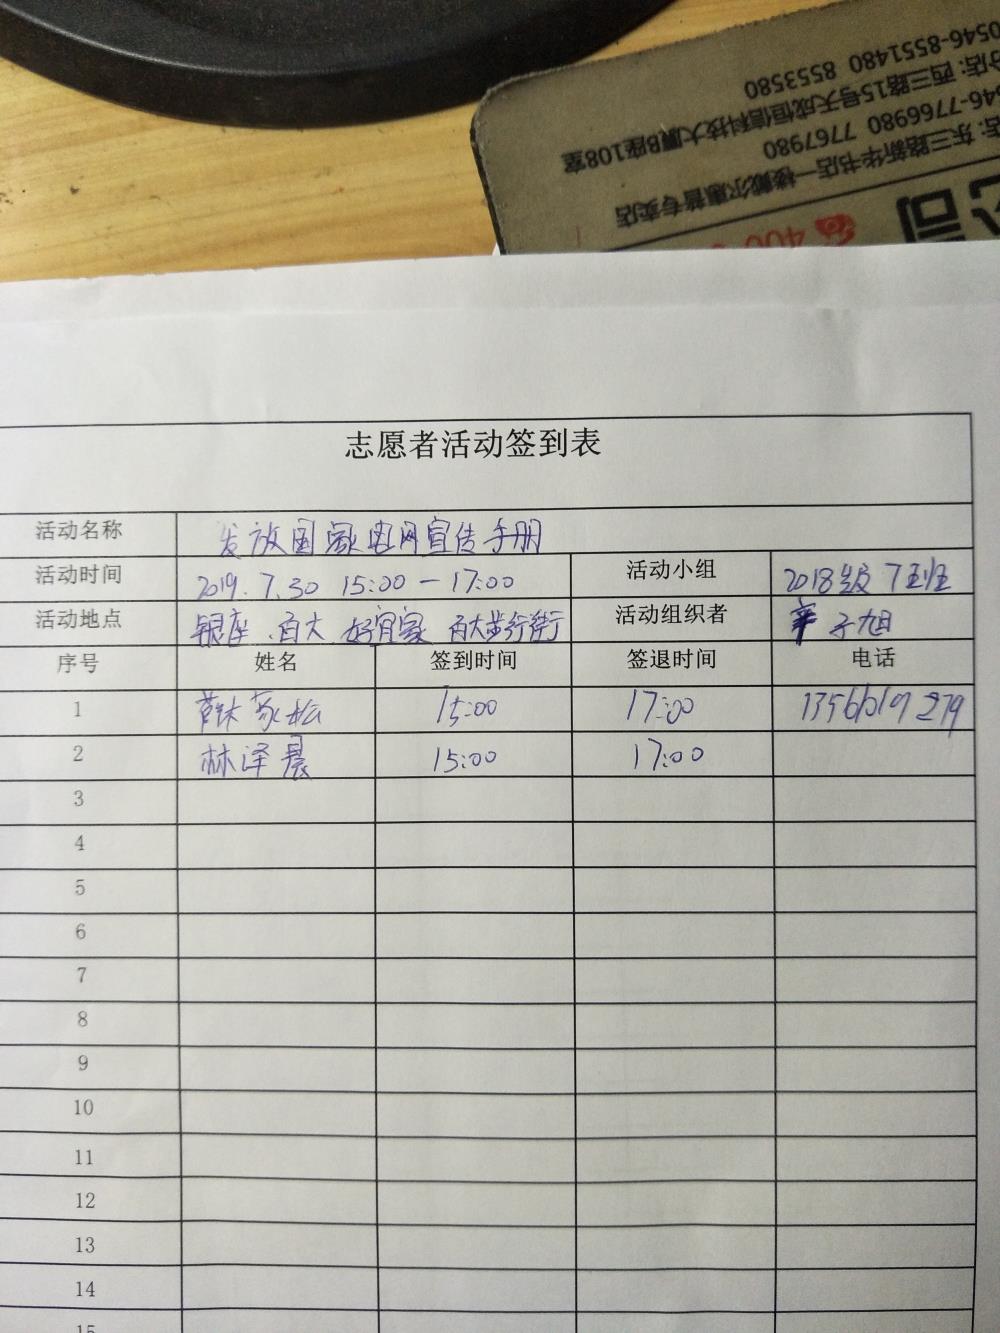 0546-8551480 8553580
分店: 西三路15号天成恒信科技大厦B座108室
546-7766980 7767980
店: 东三路新华书店一楼戴尔惠普专卖店
400
公司
志愿者活动签到表
活动名称 发放国家电网宣传手册
活动时间 2019.7.30 15:00－17:00 活动小组 2018级7班
活动地点 银座.百大.好宜家 百大步行街 活动组织者 子旭
序号 姓名 签到时间 签退时间 电话
1 15:00 17:00
2 林泽晨 15:00 17:00
3
4
5
6
7
8
9
10
11
12
13
14
15